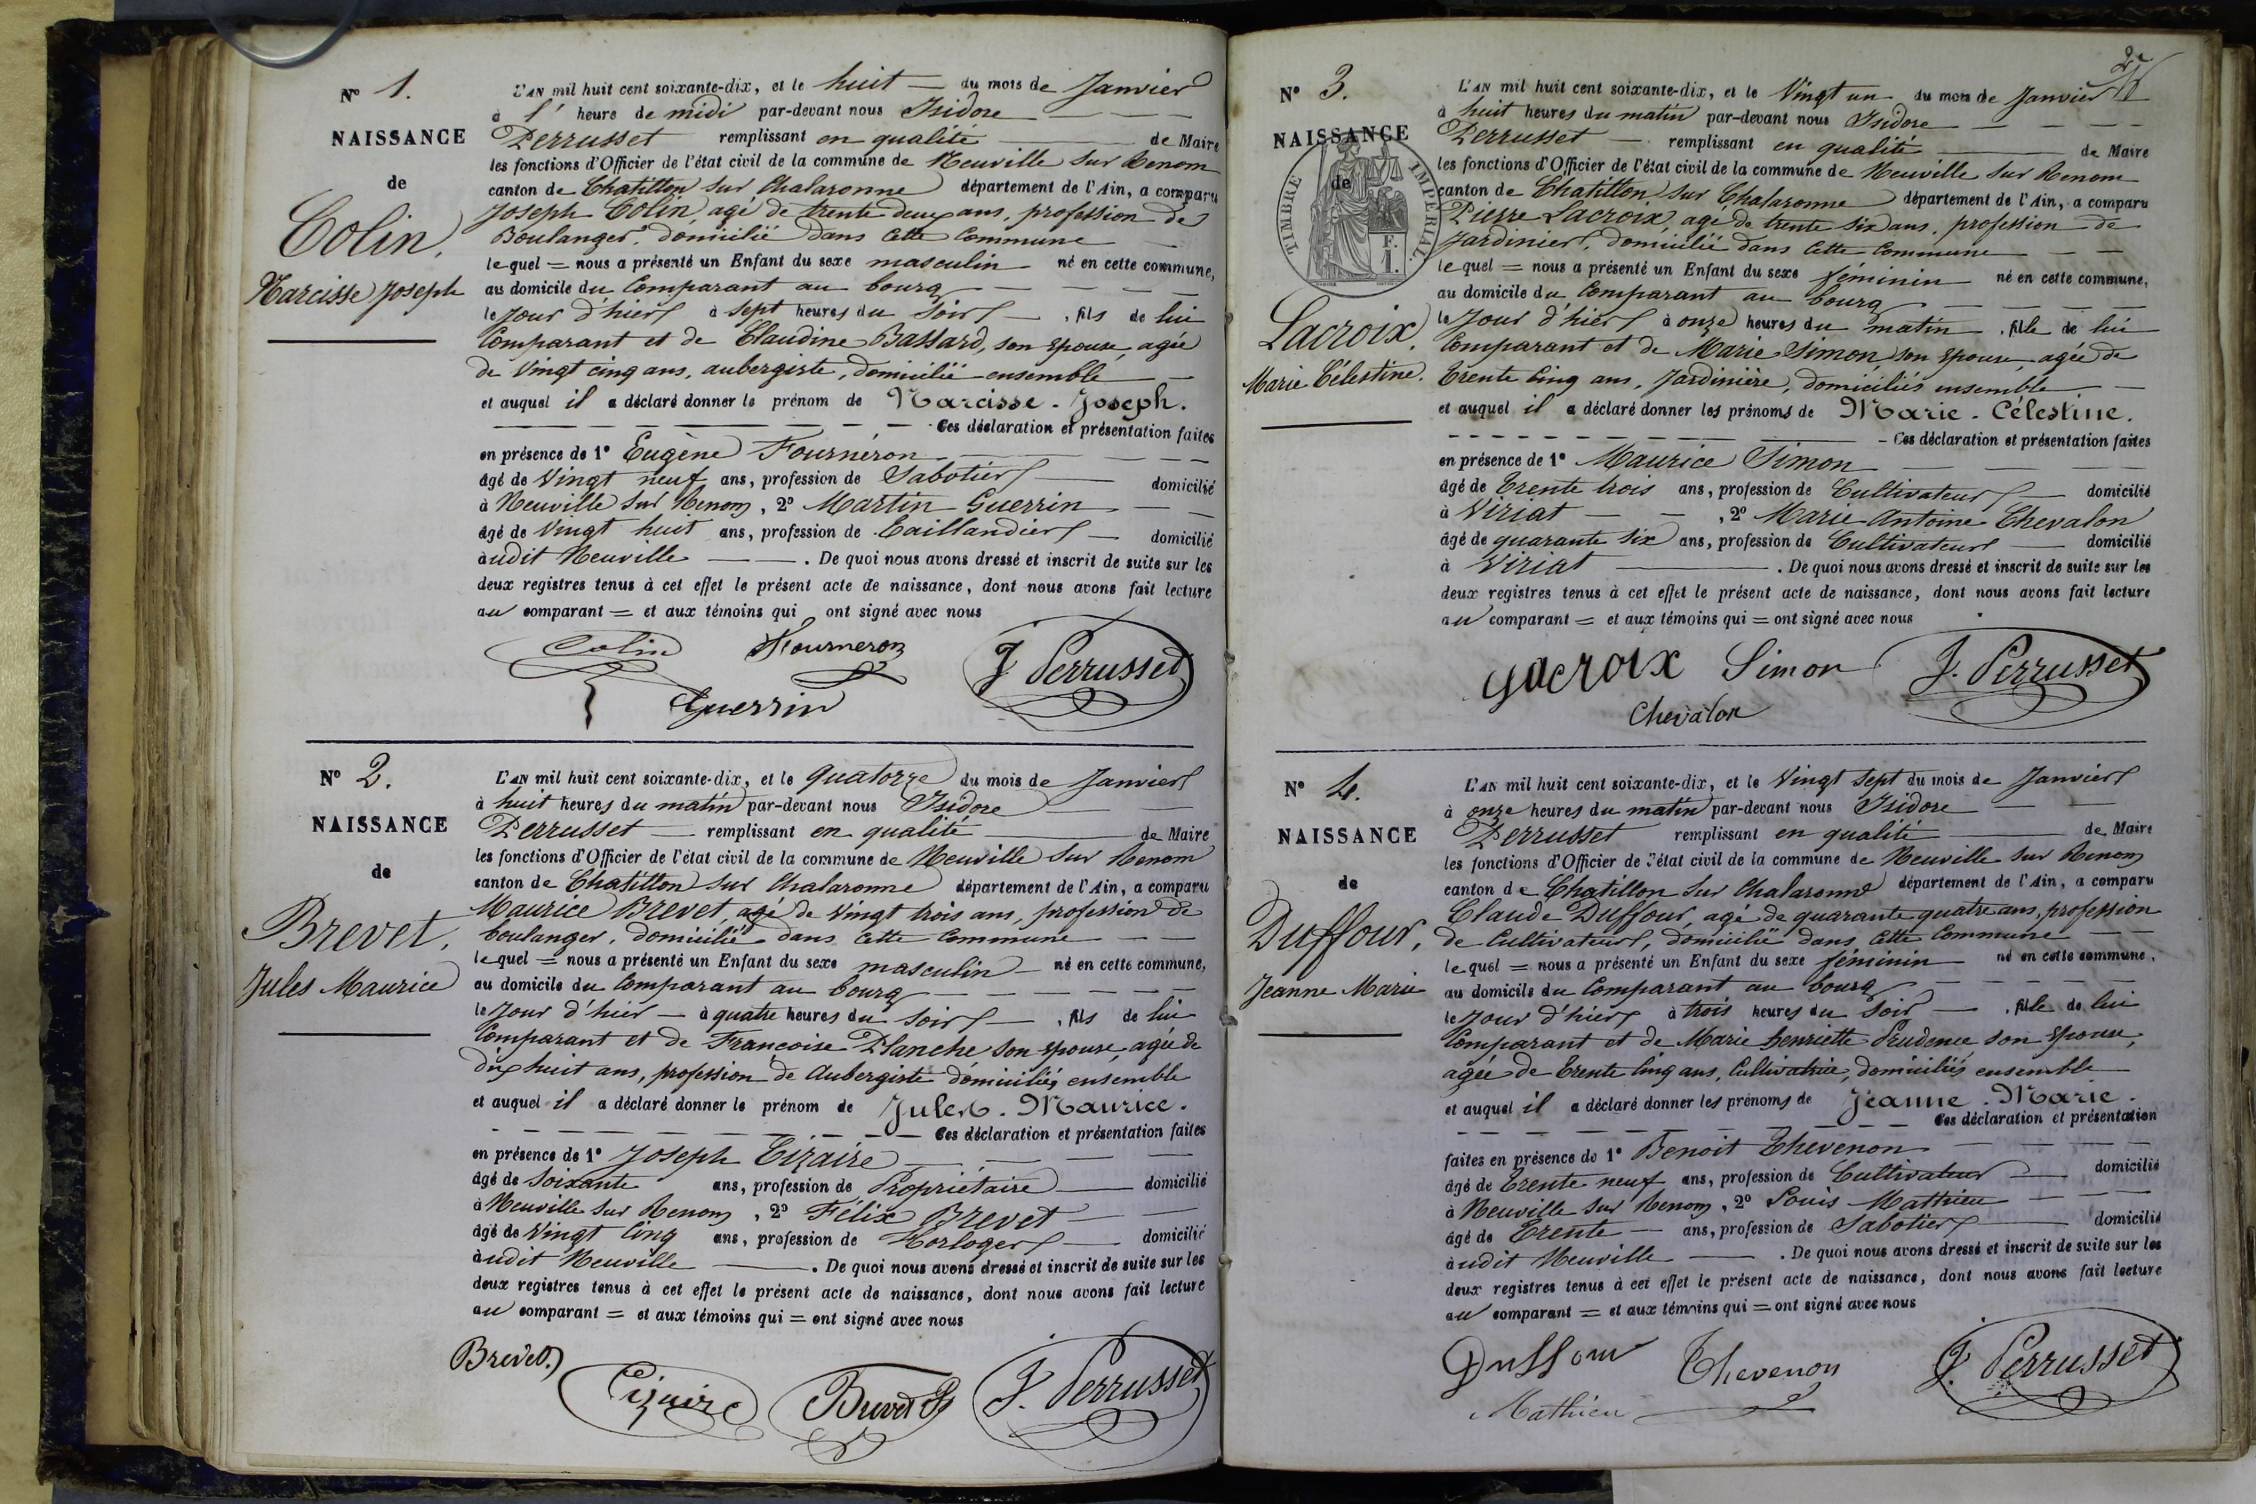 N° 1.
NAISSANCE
de
Colin,
Narcisse Joseph
L'AN mil huit cent soixante-dix, et le huit — du mois de Janvier
à l' heure de midi par-devant nous Isidore — — —
Perrusset remplissant en qualité — de Maire
les fonctions d'Officier de l'état civil de la commune de Neuville sur Renom
canton de Chatillon sur Chalaronne département de l'Ain, a comparu
Joseph Colin, agé de trente deux ans, profession de
Boulanger, domicilié dans cette Commune —
lequel = nous a présenté un Enfant du sexe masculin — né en cette commune,
au domicile du Comparant au bourg — — — —
le jour d'hier à sept heures du soir — , fils de lui
Comparant et de Claudine Bassard, son épouse, agée
de vingt cinq ans, aubergiste, domicilié ensemble —
et auquel il a déclaré donner le prénom de Narcisse - Joseph.
— — — — — — Ces déclaration et présentation faites
en présence de 1° Eugène Fournéron — — — —
âgé de vingt neuf ans, profession de Sabotier — domicilié
à Neuville sur Renom, 2° Martin Guerrin — —
âgé de vingt huit ans, profession de Taillandier — domicilié
à udit Neuville — . De quoi nous avons dressé et inscrit de suite sur les
deux registres tenus à cet effet le présent acte de naissance, dont nous avons fait lecture
au comparant = et aux témoins qui ont signé avec nous
Colin Fourneron J Perrusset
Guerrin
N° 2.
NAISSANCE
de
Brevet,
Jules Maurice
L'AN mil huit cent soixante-dix, et le quatorze du mois de Janvier
à huit heures du matin par-devant nous Isidore —
Perrusset — remplissant en qualité — de Maire
les fonctions d'Officier de l'état civil de la commune de Neuville sur Renom
canton de Chatillon sur Chalaronne département de l'Ain, a comparu
Maurice Brevet, agé de vingt trois ans, profession de
boulanger, domicilié dans cette Commune — —
lequel = nous a présenté un Enfant du sexe masculin — né en cette commune,
au domicile du Comparant au bourg — — — —
le jour d'hier — à quatre heures du soir — , fils de lui
Comparant et de Françoise Planche son épouse, agée de
dix huit ans, profession de Aubergiste domiciliés ensemble
et auquel il a déclaré donner le prénom de Jules - Maurice.
— — — — — — Ces déclaration et présentation faites
en présence de 1° Joseph Tizaire — — — —
âgé de soixante ans, profession de Propriétaire — domicilié
à Neuville sur Renom, 2° Félix Brevet — —
âgé de vingt cinq ans, profession de Horloger — domicilié
à udit Neuville — . De quoi nous avons dressé et inscrit de suite sur les
deux registres tenus à cet effet le présent acte de naissance, dont nous avons fait lecture
au comparant = et aux témoins qui = ont signé avec nous
Brevet Tizaire Brevet J. Perrusset
N° 3.
NAISSANCE
de
TIMBRE IMPÉRIAL.
F.
1.
Lacroix,
Marie Célestine.
L'AN mil huit cent soixante-dix, et le vingt un — du mois de Janvier
à huit heures du matin par-devant nous Isidore — — — —
Perrusset — remplissant en qualité — de Maire
les fonctions d'Officier de l'état civil de la commune de Neuville sur Renom
canton de Chatillon sur Chalaronne département de l'Ain, a comparu
Pierre Lacroix, agé de trente six ans, profession de
Jardinier, domicilié dans cette Commune — —
lequel = nous a présenté un Enfant du sexe féminin né en cette commune,
au domicile du Comparant au bourg — — — —
le jour d'hier à onze heures du matin , fille de lui
Comparant et de Marie Simon son épouse, agée de
trente cinq ans, Jardinière, domiciliés ensemble — —
et auquel il a déclaré donner les prénoms de Marie - Célestine.
— — — — — — Ces déclaration et présentation faites
en présence de 1° Maurice Simon — — — —
âgé de trente trois ans, profession de Cultivateur — domicilié
à Viriat — — , 2° Marie Antoine Chevalon
âgé de quarante six ans, profession de Cultivateur — domicilié
à Viriat — . De quoi nous avons dressé et inscrit de suite sur les
deux registres tenus à cet effet le présent acte de naissance, dont nous avons fait lecture
au comparant = et aux témoins qui = ont signé avec nous
Lacroix Simon J. Perrusset
Chevalon
N° 4.
NAISSANCE
de
Duffour,
Jeanne Marie
L'AN mil huit cent soixante-dix, et le vingt sept du mois de Janvier
à onze heures du matin par-devant nous Isidore — — —
Perrusset remplissant en qualité — de Maire
les fonctions d'Officier de l'état civil de la commune de Neuville sur Renom
canton de Chatillon sur Chalaronne département de l'Ain, a comparu
Claude Duffour, agé de quarante quatre ans, profession
de Cultivateur, domicilié dans cette Commune — —
lequel = nous a présenté un Enfant du sexe féminin né en cette commune,
au domicile du Comparant au bourg — — — —
le jour d'hier à trois heures du soir — , fille de lui
Comparant et de Marie henriette Prudence son épouse,
agée de trente cinq ans, Cultivatrice, domiciliés ensemble
et auquel il a déclaré donner les prénoms de Jeanne - Marie.
— — — — — — Ces déclaration et présentation
faites en présence de 1° Benoit Thevenon — — —
âgé de trente neuf ans, profession de Cultivateur — domicilié
à Neuville sur Renom, 2° Louis Mathieu — — —
âgé de trente — ans, profession de Sabotier — domicilié
à udit Neuville — . De quoi nous avons dressé et inscrit de suite sur les
deux registres tenus à cet effet le présent acte de naissance, dont nous avons fait lecture
au comparant = et aux témoins qui = ont signé avec nous
Duffour Thevenon J. Perrusset
Mathieu